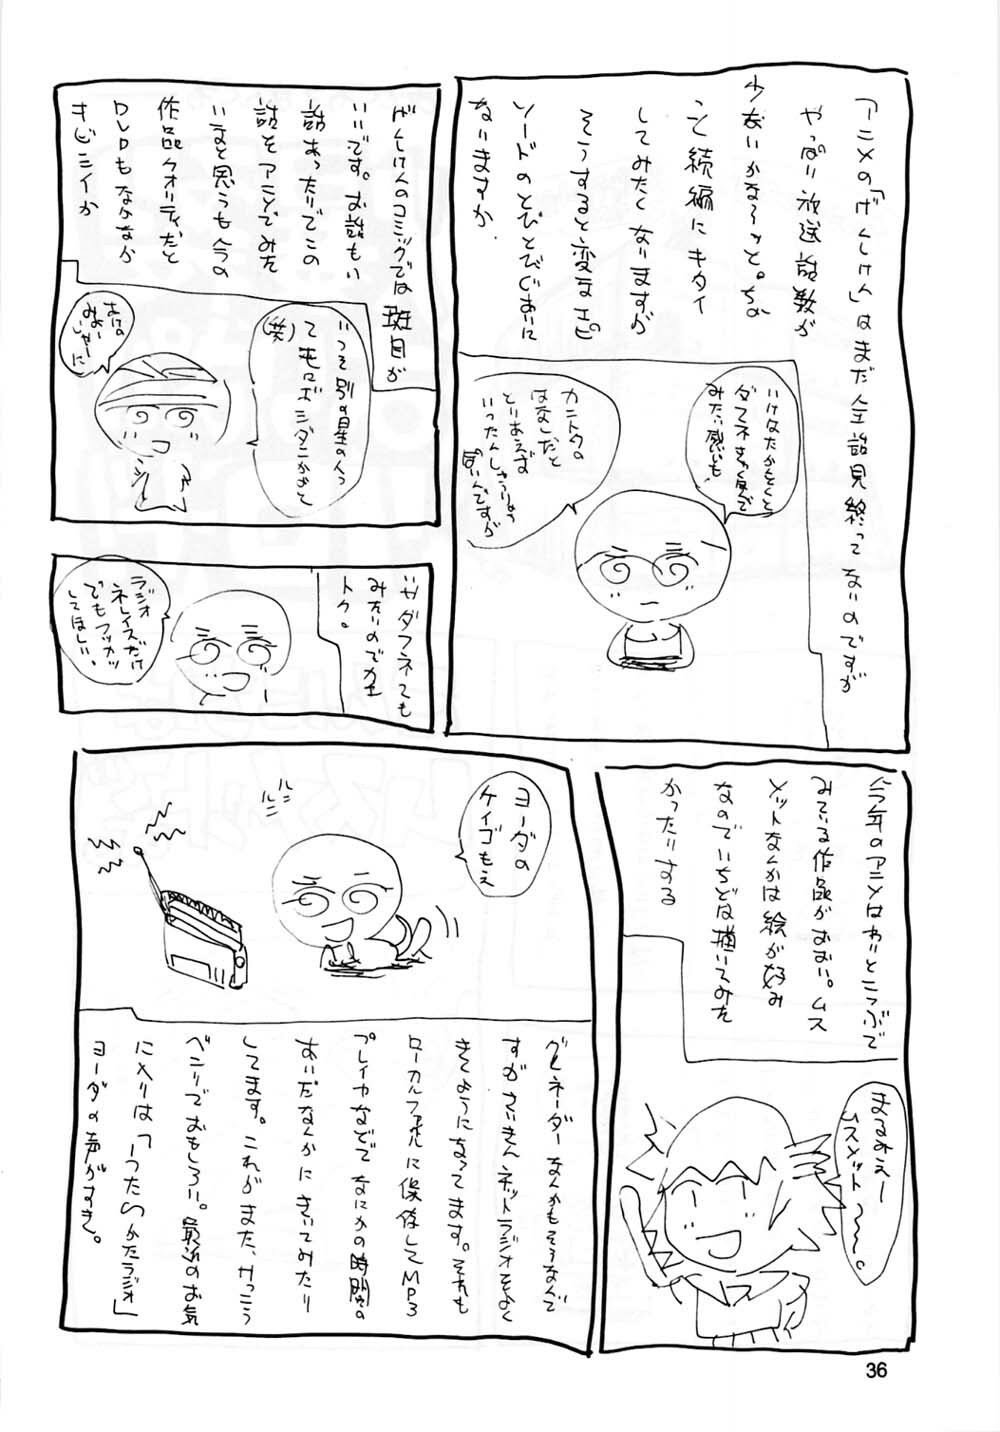 アニメの「げんしけん」はまだ全話見終ってないのですが
やっぱり放送話数が
少ないかな〜ッと。ちょ
こと続編にキタイ
してみたくなりますが
そうすると変なエピ
ソードのとびとびぐあいに
ないますか
みたい感じも
カントクの
はなしだと
とりあえず
いったんしゅうりょう
ぽいんですが
げんしけんのコミックでは斑目が
いいです。お話もい
話あったりでこの
話をアニメでみた
いまと思うも今の
作品クオリティだと
DVDもなかなか
キビシイか
いっそ別の星の人っ
(笑)
みたいのでカエ
トク。
ラジオ
ネレイズだけ
でもフッカツ
してほしい。
今年のアニメはわりとこつぶで
みている作品がおおい。ムス
メットなんかは絵が好み
なのでいちどは描いてみた
かったりする
まるみえー
Sスメット〜〜。
ヨーダの
ケイゴもえ
グレネーダーなんかもそうなんで
すがさいきんネットラジオをよく
きくようになってます。それも
ローカルファイルに保存してMP3
プレイヤなどで なにかの時間の
あいだなんかにきいてみたり
してます。これがまた、けっこう
ベンリでおもしろい。最近のお気
に入りは「うたわれラジオ」
ヨーダの声がすき。
36